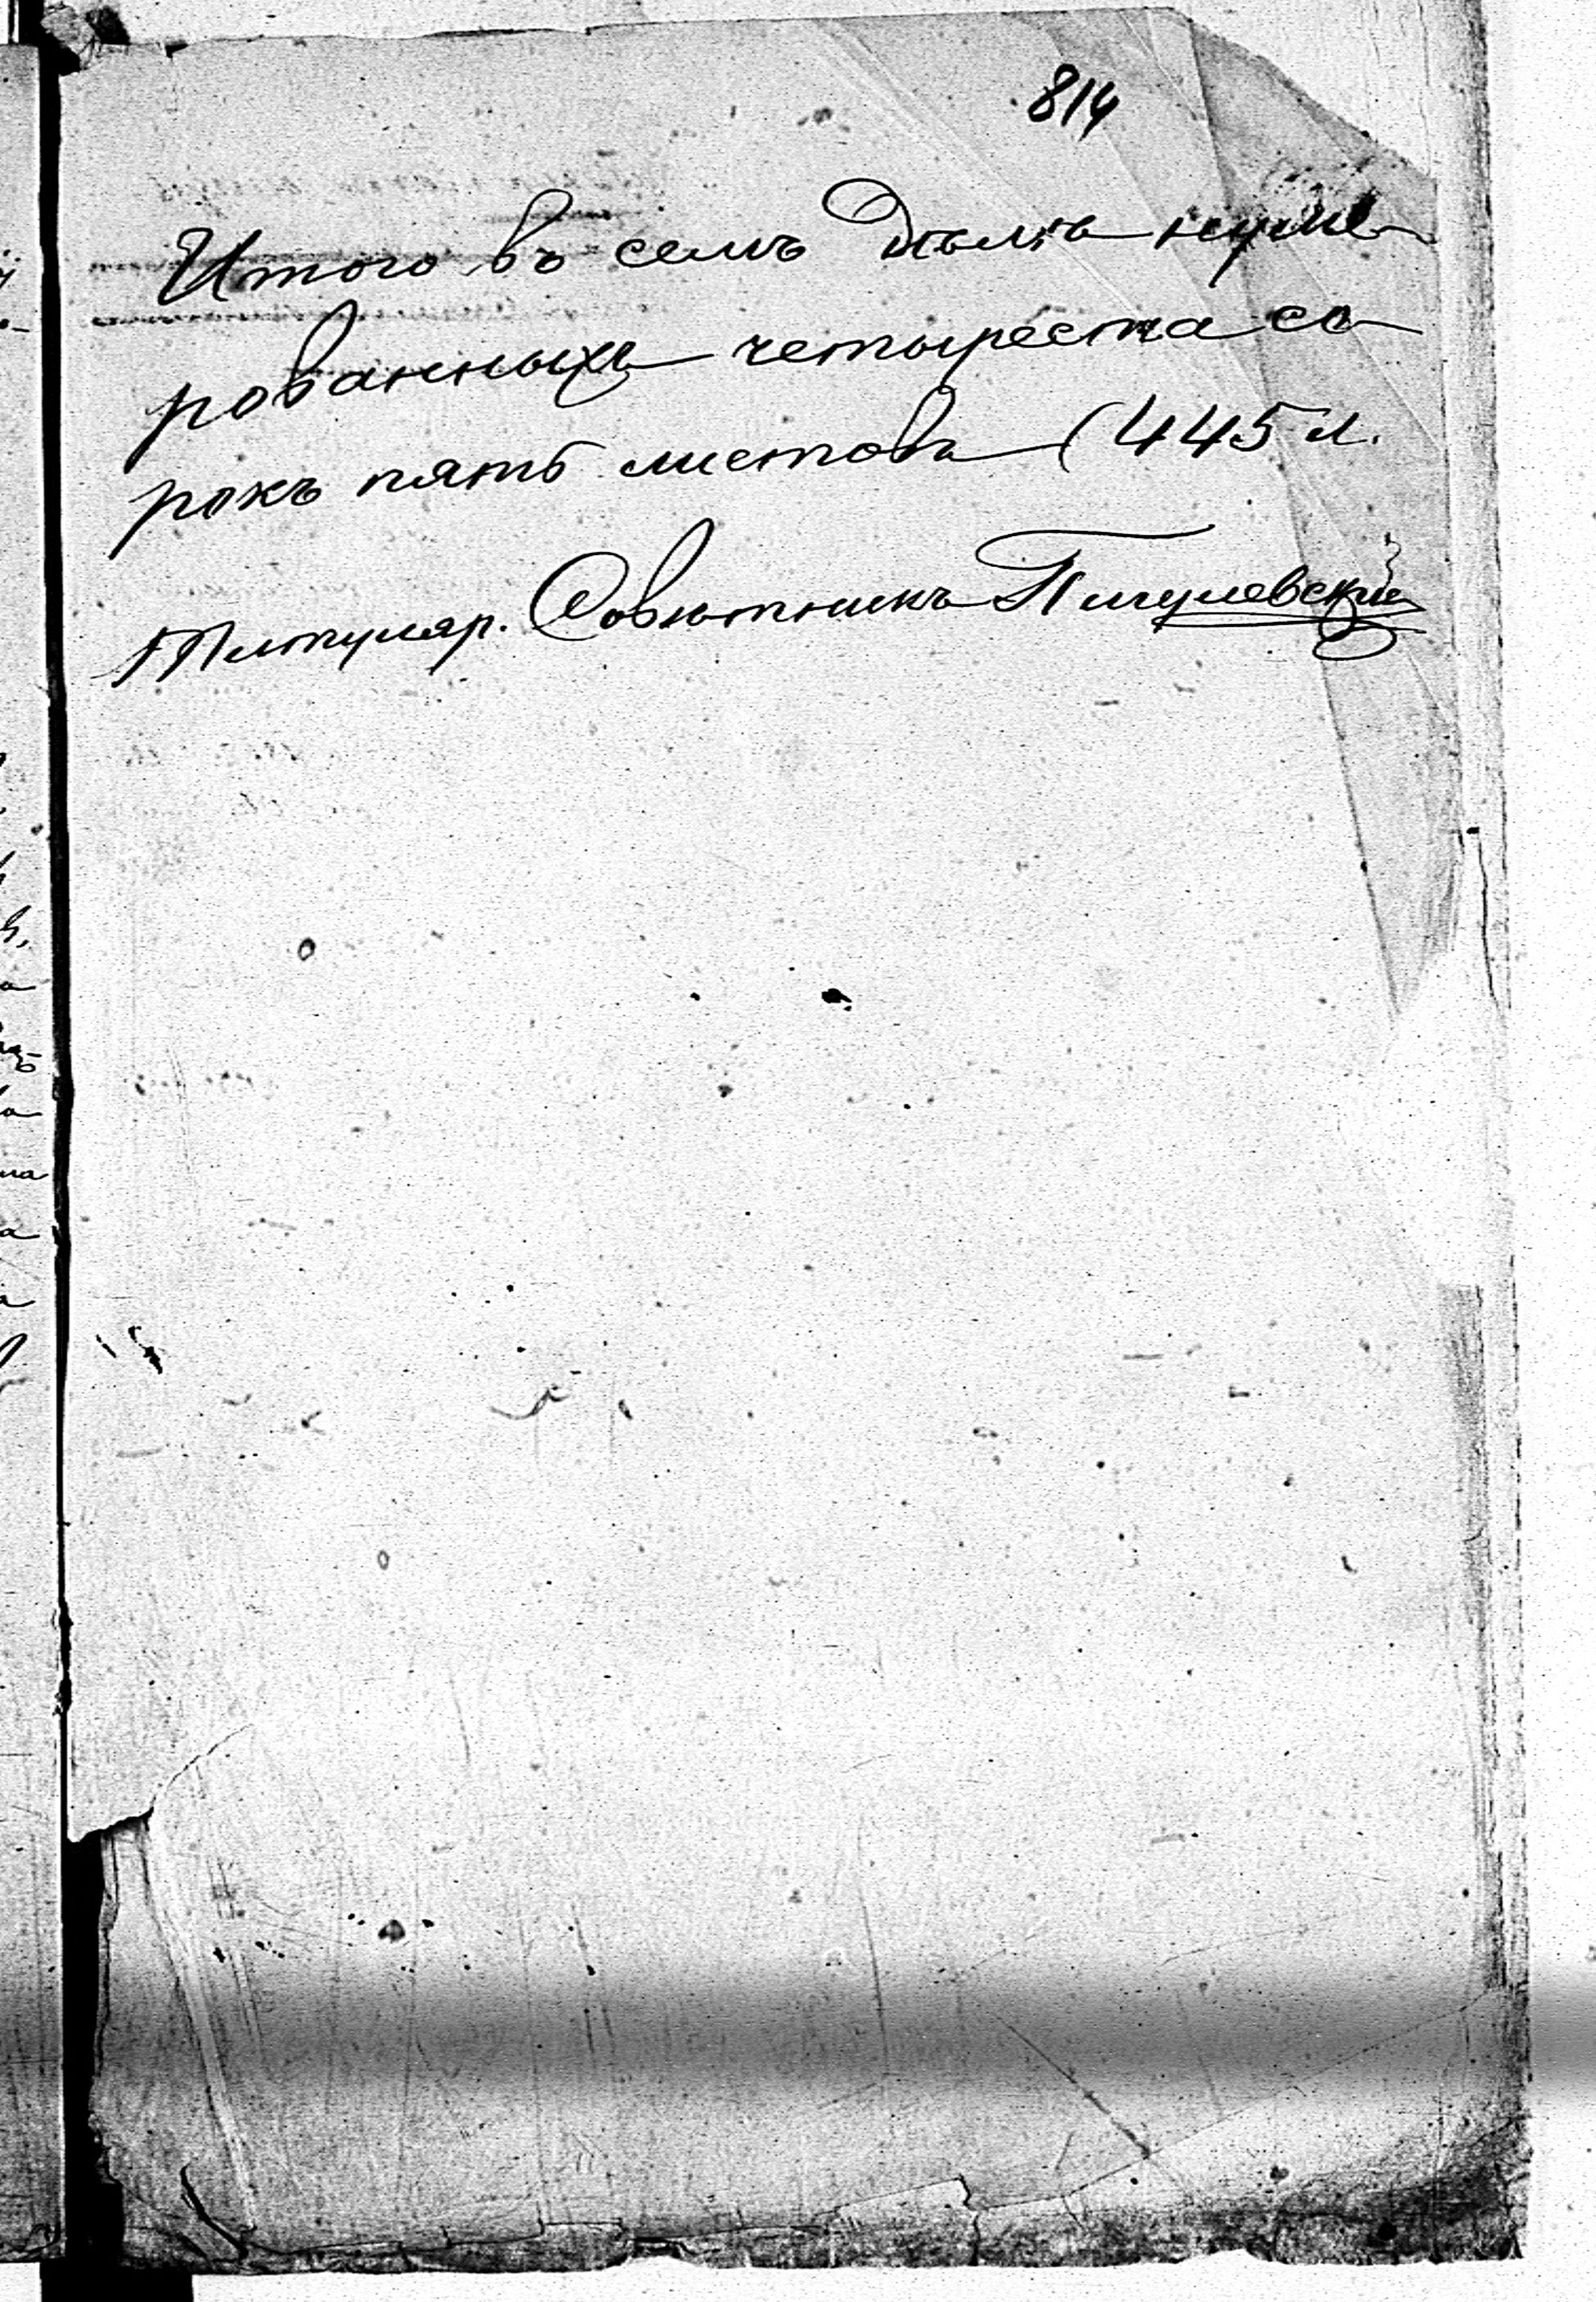 814
Итого въ семъ Дѣлѣ нуме-
рованныхъ четыреста со-
рокъ пять листовъ (445 л.
Титуляр. Совѣтникъ Пигулевскій